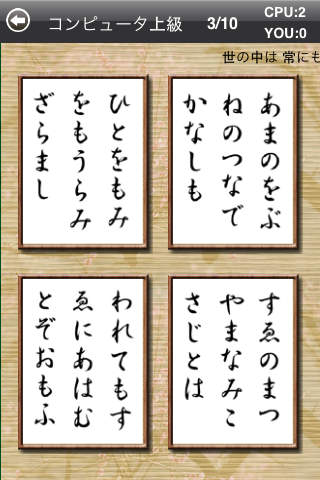 コンピュータ上級 3/10 CPU:2
YOU:0
世の中は 常にも
あまのをぶ
ねのつなで
かなしも
ひとをもみ
をもうらみ
ざらまし
すゑのまつ
やまなみこ
さじとは
われてもす
ゑにあはむ
とぞおもふ